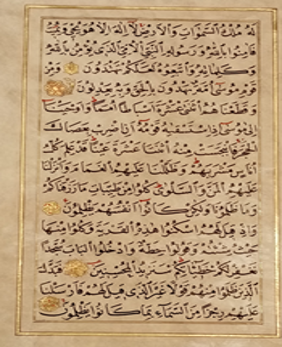 لَهُ مُلْكُ السَّمٰوَاتِ وَالْاَرْضِ لَا اِلٰهَ اِلَّا هُوَ يُحْيِ وَيُمِيتُ
فَاٰمِنُوا بِاللّٰهِ وَرَسُولِهِ النَّبِيِّ الْاُمِّيِّ الَّذِي يُؤْمِنُ بِاللّٰهِ
وَكَلِمَاتِهِ وَاتَّبِعُوهُ لَعَلَّكُمْ تَهْتَدُونَ وَمِنْ
قَوْمِ مُوسٰى اُمَّةٌ يَهْدُونَ بِالْحَقِّ وَبِهِ يَعْدِلُونَ
وَقَطَّعْنَاهُمُ اثْنَتَيْ عَشْرَةَ اَسْبَاطًا اُمَمًا وَاَوْحَيْنَا
اِلٰى مُوسٰى اِذِ اسْتَسْقٰيهُ قَوْمُهُ اَنِ اضْرِبْ بِعَصَاكَ
الْحَجَرَ فَانْبَجَسَتْ مِنْهُ اثْنَتَا عَشْرَةَ عَيْنًا قَدْ عَلِمَ كُلُّ
اُنَاسٍ مَشْرَبَهُمْ وَظَلَّلْنَا عَلَيْهِمُ الْغَمَامَ وَاَنْزَلْنَا
عَلَيْهِمُ الْمَنَّ وَالسَّلْوٰى كُلُوا مِنْ طَيِّبَاتِ مَا رَزَقْنَاكُمْ
وَمَا ظَلَمُونَا وَلٰكِنْ كَانُوا اَنْفُسَهُمْ يَظْلِمُونَ
وَاِذْ قِيلَ لَهُمُ اسْكُنُوا هٰذِهِ الْقَرْيَةَ وَكُلُوا مِنْهَا
حَيْثُ شِئْتُمْ وَقُولُوا حِطَّةٌ وَادْخُلُوا الْبَابَ سُجَّدًا
نَغْفِرْ لَكُمْ خَطِيئَاتِكُمْ سَنَزِيدُ الْمُحْسِنِينَ فَبَدَّلَ
الَّذِينَ ظَلَمُوا مِنْهُمْ قَوْلًا غَيْرَ الَّذِي قِيلَ لَهُمْ فَاَرْسَلْنَا
عَلَيْهِمْ رِجْزًا مِنَ السَّمَاءِ بِمَا كَانُوا يَظْلِمُونَ